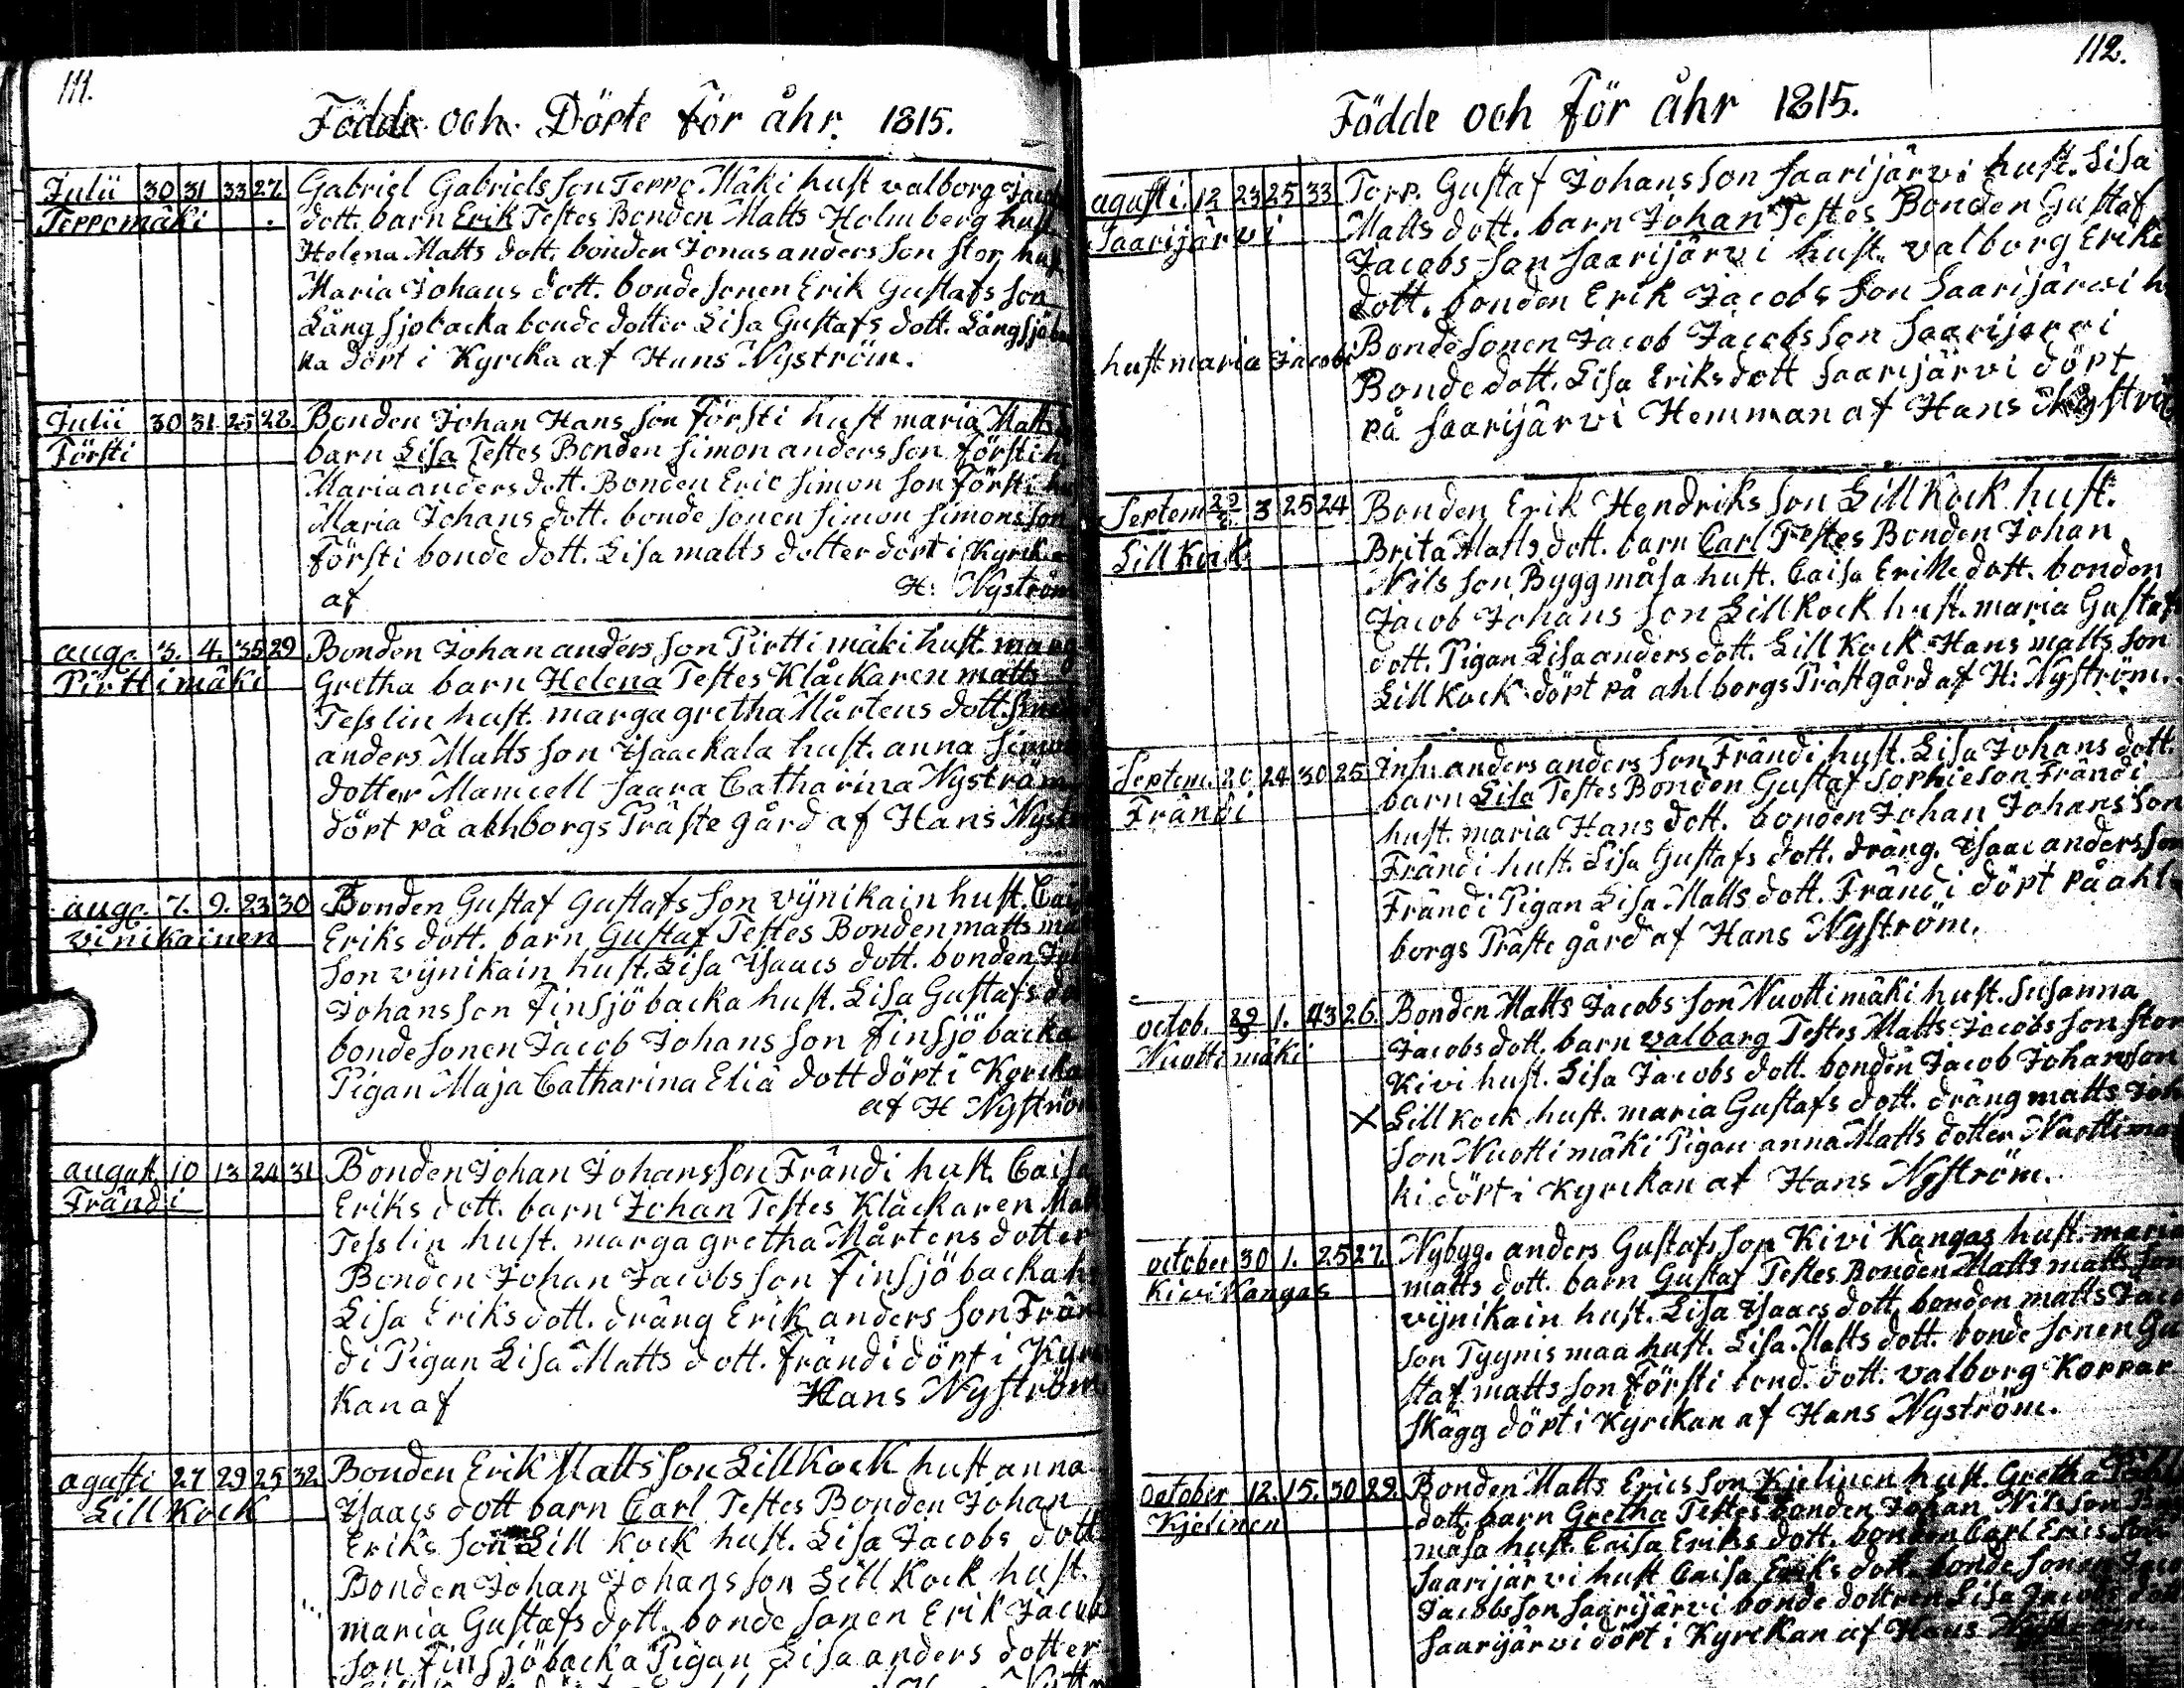 111.
Födde och Döpte För åhr. 1815.
Julii 30 31 33 27. Gabriel Gabrielsson Teppo Mäki hust valborg
Teppomäki dott. barn Erik Testes Bonden Matts Holmberg hust
Helena Matts dott. bonden Jonas anders son stor hust
Maria Johans dott. bondesonen Erik Gustafs son
Långsjobacka bonde dotter Lisa Gustafs dott. Långsjöba
ka döpt i Kyrcka af Hans Nyström.
Julii 30 31 25 28. Bonden Johan Hans son Försti hust maria Matts
Försti barn Lisa Testes Bonden Simon anders son Försti h
Maria anders dott. Bonden Eric Simon son Försti hu
Maria Johans dott. bonde sonen Simon Simons son
Försti bonde dott. Lisa matts dotter döpt i Kyrcka
af H: Nyström
augc. 3. 4. 35 29 Bonden Johan anders son Pirttimäki hust. marg
Pirttimäki Gretha barn Helena Testes Klåckaren matts
Tesslin hust. margagretha Mårtens dott.
anders Matts son Isaackala hust. anna Simon
dotter Mamcell Saara Catharina Nyström
döpt på ahhborgs Präste gård af Hans Nyst
augc. 7. 9. 23 30 Bonden Gustaf Gustafs son vijnikain hust. Cai
vinikainen Eriks dott. barn Gustaf Testes Bonden matts ma
son vijnikain hust. Lisa Isaacs dott. bonden Joh
Johansson Finsjöbacka hust. Lisa Gustafs do
bondesonen Jacob Johans son Finsjöbacka
Pigan Maja Catharina Eliä dott döpt i Kyrcka
af H Nyströ
august 10 13 24 31 Bonden Johan Johansson Frändi hust. Caisa
Frändi Eriks dott. barn Johan Testes Klåckaren Mat
Tesslin hust. margagretha Mårtens dotter
Bonden Johan Jacobs son Finsjöbacka h
Lisa Eriks dott. dräng Erik anders son Frän
di Pigan Lisa Matts dott. Frändi döpt i Kyr
kan af Hans Nyström
agusti 27 29 25 32. Bonden Erik Matts son Lillkock hust anna
Lillkock Isaacs dott barn Carl Testes Bonden Johan
Eriks son Lill kock hust. Lisa Jacobs dott
Bonden Johan Johans son Lill Kock hust.
maria Gustafs dott. bonde sonen Erik Jacobs
son Finsjöbacka Pigan Lisa anders dotter
112.
Födde och För åhr 1815.
agusti. 12 23 25 33 Torp. Gustaf Johansson Saarijärvi hust. Lisa
Saarijärvi Matts dott. barn Johan Testes Bonden Gustaf
Jacobs son Saarijärvi hust. valborg Eriks
dott. bonden Erik Jacobs son Saarijärvi h
hust maria Jacobs Bondesonen Jacob Jacobsson Saarijervi
Bonde dott. Lisa Eriksdott Saarijärvi döpt
på Saarijärvi Hemman af Hans Nyströ
Septem 3 25 24 Bonden Erik Hendriks son Lillkock hust.
Lillkock Brita Matts dott. barn Carl Testes Bonden Johan
Nils son Byggmåsa hust. Caisa Eriks dott. bonden
Jacob Johans son Lillkock hust. maria Gustaf
dott. Pigan Lisa anders dott. Lillkock Hans matts son
Lillkock döpt på ahlborgs Prästgård af H: Nyström.
Septem. 20 24 30 25 Inh. anders anders son Frändi hust. Lisa Johans dott.
Frändi barn Lisa Testes Bonden Gustaf Sophieson Frändi
hust. maria Hans dott. bonden Johan Johans son
Frändi hust. Lisa Gustafs dott. dräng. Isaac andersson
Frändi Pigan Lisa Matts dott. Frändi döpt på ahl
borgs Präste gård af Hans Nyström.
octob. 29 1. 43 26. Bonden Matts Jacobs son Nuottimäki hust. Susanna
Nuottimäki Jacobs dott. barn valbarg Testes Matts Jacobs son stor
Kivi hust. Lisa Jacobs dott. bonden Jacob Johansson
X Lillkock hust. maria Gustafs dott. dräng matts Joh
son Nuottimäki Pigan anna Matts dotter Nuottimä
ki döpt i Kyrckan af Hans Nyström.
october 30 1. 25 27. Nybyg. anders Gustafs son Kivi Kangas hust. mari
Kivikangas matts dott. barn Gustaf Testes Bonden Matts matts son
vijnikain hust. Lisa Isaacs dott. bonden matts Jac
son Tyynismaa hust. Lisa Matts dott. bonde sonen Gu
staf matts son Försti bond. dott. valborg Koppar
skägg döpt i Kyrckan af Hans Nyström.
october 12. 15. 30 29. Bonden Matts Erics son Kjelinen hust. Gretha
Kjelinen dott. barn Gretha Testes bonden Johan Nils son By
måsa hust. Caisa Eriks dott. bonden Carl Erics son
Saarijärvi hust Caisa Eriks dott. bonde sonen Jac
Jacobsson Saarijärvi bonde dottren Lisa Jacobs dott
Saarijärvi döpt i Kyrckan af Hans Nyström.